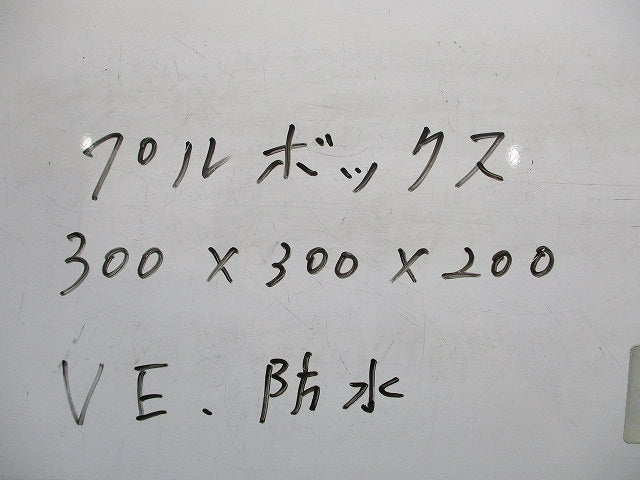 プルボックス
300×300×200
VE.防水